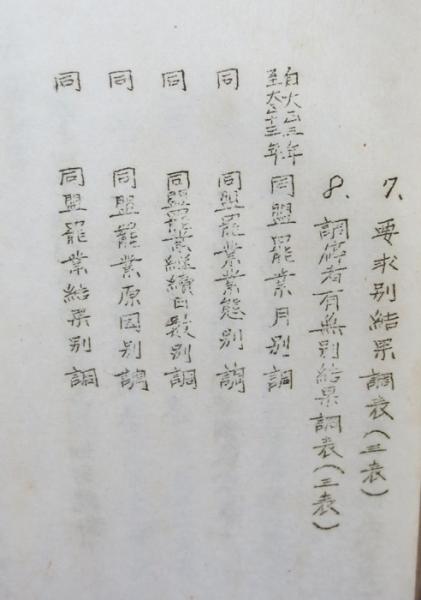 7、要求別結果調表(三表)
8、調停者有無別結果調表(三表)
自大正三年至大正十三年 同盟罷業月別調
同 同盟罷業業態別調
同 同盟罷業継続日数別調
同 同盟罷業原因別調
同 同盟罷業結果別調